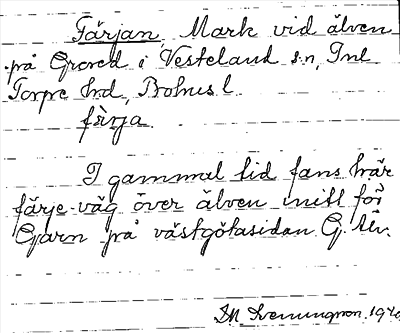 Färjan, Mark vid älven
på Grored i Vesteland s.n, Inl
Torpe hrd, Bohus l.
färja.
I gammal tid fans här
färje-väg över älven mitt för
Garn på västgötasidan G. älv.